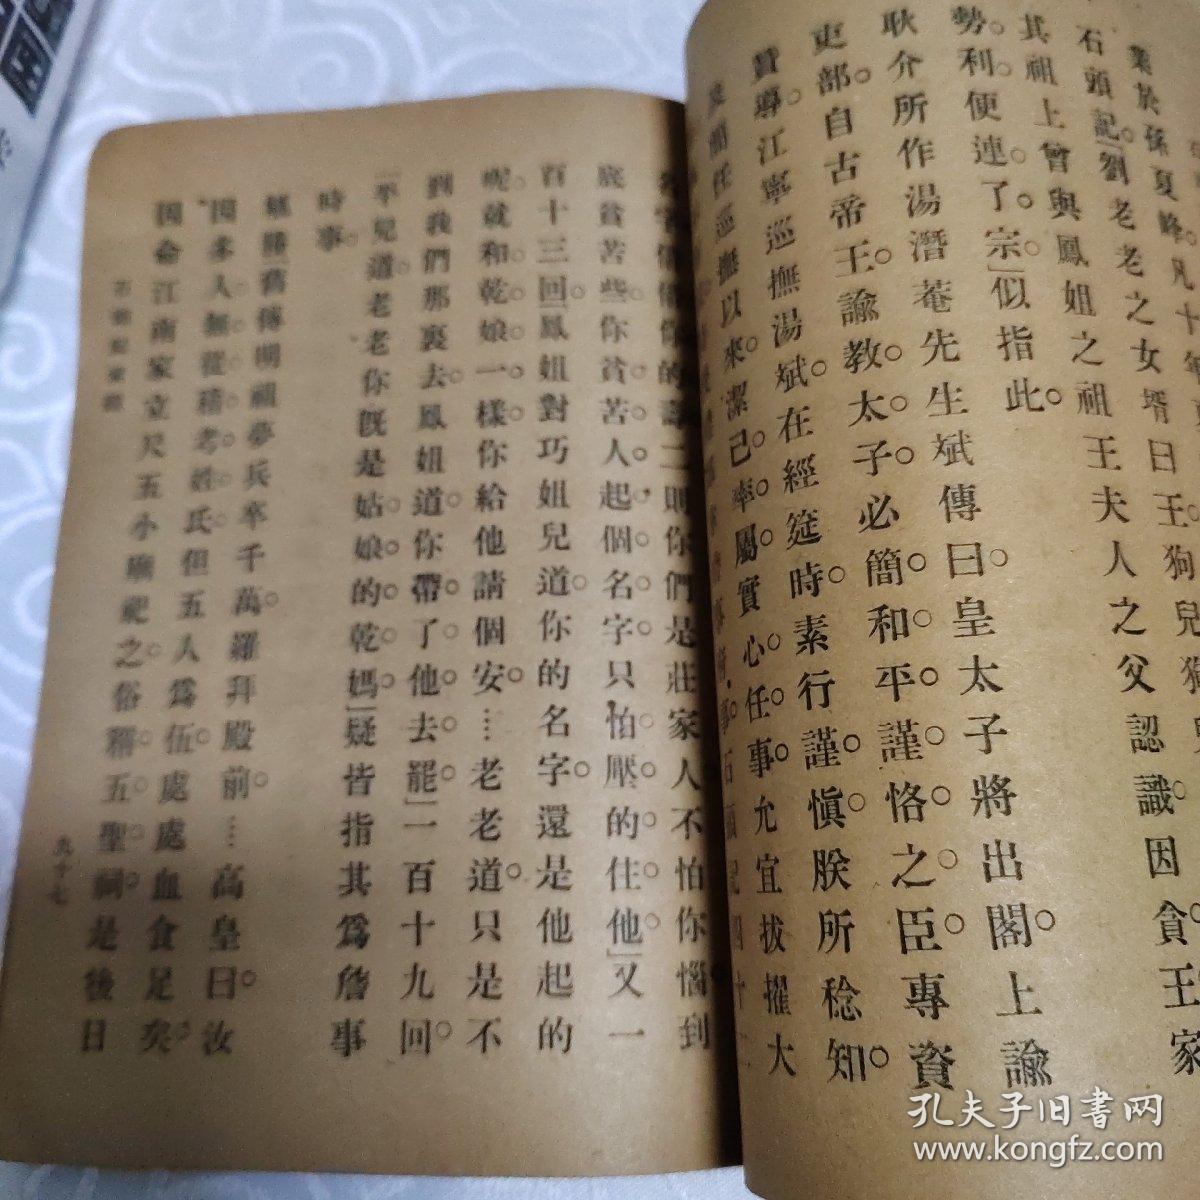 業於孫夏峰。凡十年
石頭記。「劉老老之女壻曰王。狗兒
其祖上曾與鳳姐之祖王夫人之父認識。因貪王家
勢。利。便連。了。宗。」似指此。
耿介所作湯潛菴先生斌傳曰。皇太子將出閣。上諭
吏部。自古帝王。諭教太子。必簡和平謹恪之臣。專資
贊導。江寧巡撫湯斌。在經筵時。素行謹愼。朕所稔知。
簡任巡撫以來。潔己率屬。實心任事。允宜拔擢大
你的
二則你們是莊家人。不怕你惱。到
底貧苦些。你貧苦人起個名字。只怕壓的住他。」又一
百十三回。「鳳姐對巧姐兒道。你的名字。還是他起的
呢。就和乾娘一樣。你給他請個安。…老老道。只是不
到我們那裏去。鳳姐道。你帶了他去罷。」一百十九回。
「平兒道。老老你旣是姑娘的乾媽」疑皆指其爲詹事
時事。
舊傳明祖夢兵卒千萬羅拜殿前。…高皇曰。汝
因多人無從稽考姓氏。但五人爲伍。處處血食足矣。
因命江南家立尺五小廟祀之。俗稱五聖祠。是後日
九十七
孔夫子旧书网
www.kongfz.com